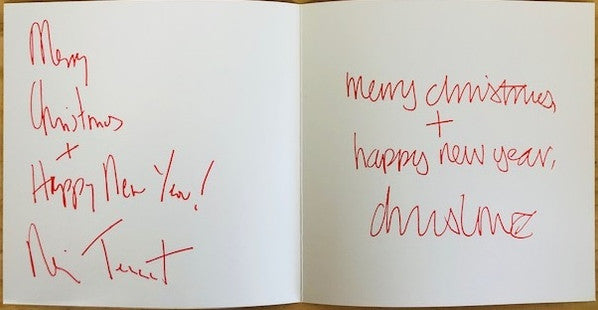 Merry
Christmas
+
Happy New Year!
Neil Tennant
merry christmas,
+
happy new year,
chris lowe